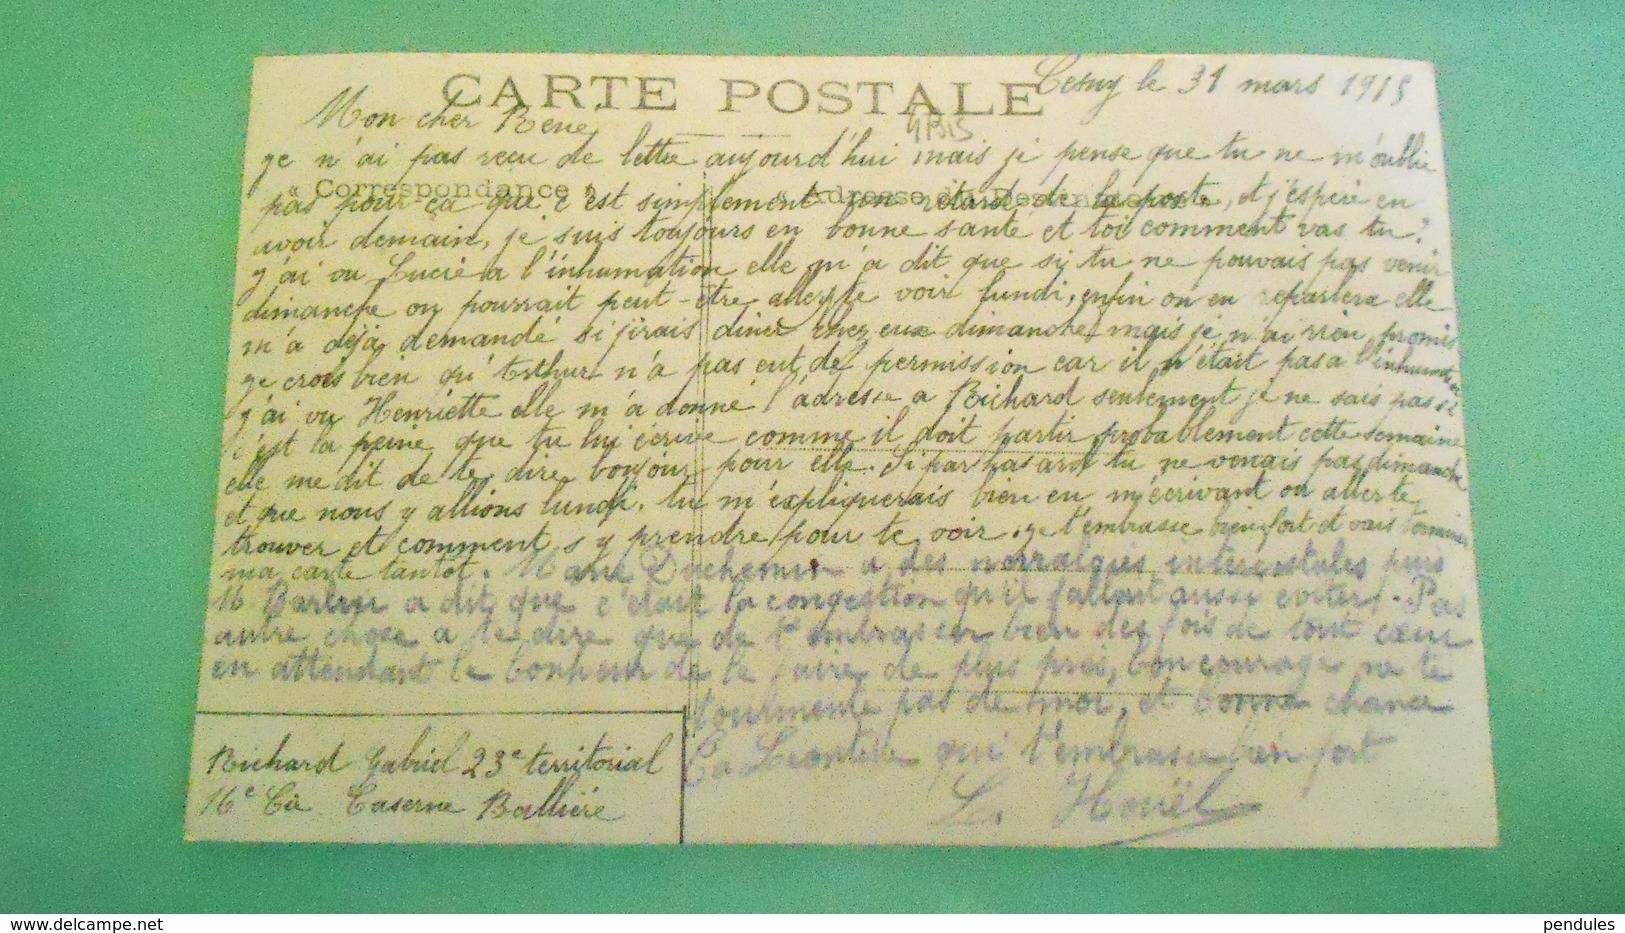 CARTE POSTALE
Cesny le 31 mars 1915
Mon cher Rene
ge n'ai pas reçu de lettre aujourd'hui mais je pense que tu ne m'oublie
" Correspondance " " Adresse du Destinataire "
pas pour ça que c'est simplement un retard de la poste, et j'espere en
avoir demain, je suis toujours en bonne santé et toi comment vas tu?
j'ai vu Lucie a l'inhumation elle m'a dit que si tu ne pouvais pas venir
dimanche on pourrait peut-être aller te voir lundi, enfin on en reparlera elle
m'a déjà demandé si j'irais diner chez eux dimanche mais je n'ai rien promis
ge crois bien qu' Arthur n'a pas eut de permission car il n'était pas a l'inhumation
j'ai vu Henriette elle m'a donné l'adresse a Richard seulement je ne sais pas si
c'est la peine que tu lui écrive comme il doit partir probablement cette semaine
elle me dit de te dire bonjour pour elle. Si par hasard tu ne venais pas dimanche
et que nous y allions lundi, tu m'expliquerais bien en m'écrivant ou aller te
trouver et comment s'y prendre pour te voir. ge t'embrasse bien fort et vais terminer
ma carte tantot. Mane Duchemin a des norralgies intercostales puis
M a dit que c'était la congestion qu'il fallait aussi eviter. Pas
autre chose a te dire que de t'embrasser bien des fois de tout cœur
en attendant le bonheur de le faire de plus près, bon courage ne te
tourmente pas de moi, et bonne chance
Ta Leontine qui t'embrasse bien fort
L. Houël
Richard Gabriel 23e territorial
16e Cie Caserne Ballière
pendules
delcampe.net